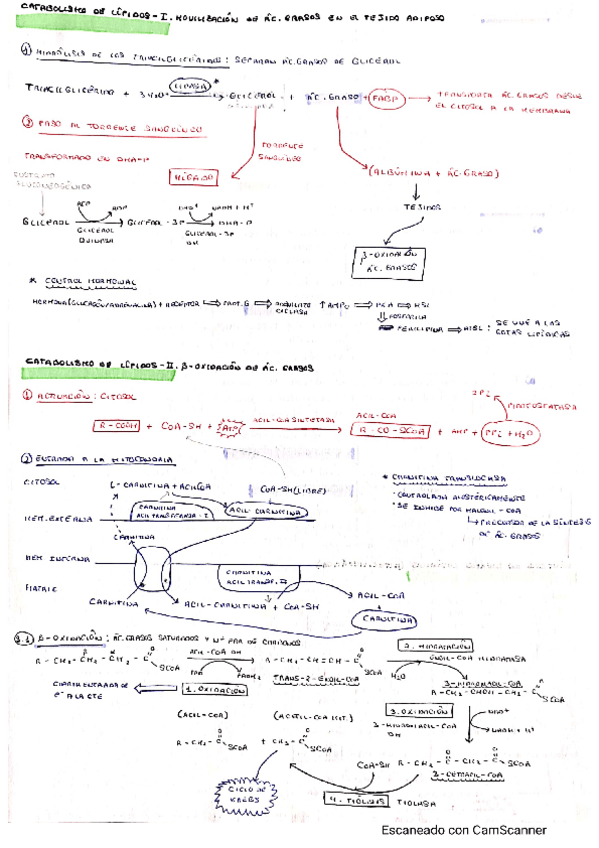 CATABOLISMO DE LÍPIDOS - I. MOVILIZACIÓN DE ÁC. GRASOS EN EL TEJIDO ADIPOSO
① HIDRÓLISIS DE LOS TRIACILGLICÉRIDOS : SEPARAN ÁC. GRASOS DE GLICEROL
TRIACILGLICÉRIDO + 3 H2O LIPASA * GLICEROL + ÁC. GRASO + FABP → TRANSPORTA ÁC. GRASOS DESDE
EL CITOSOL A LA MEMBRANA
② PASO AL TORRENTE SANGUÍNEO
TORRENTE
SANGUÍNEO
TRANSFORMADO EN DHA-P
HÍGADO
(ALBÚMINA + ÁC. GRASO)
SUSTRATO
GLUCONEOGÉNICO
TEJIDOS
ATP ADP NAD+ NADH + H+
GLICEROL → GLICEROL-3P → DHA-P
GLICEROL
QUINASA
GLICEROL-3P
DH
β-OXIDACIÓN
ÁC. GRASOS
* CONTROL HORMONAL
HORMONA (GLUCAGÓN/ADRENALINA) + RECEPTOR → PROT. G → ADENILATO
CICLASA → ↑ AMPc → PKA → HSL
FOSFORILA
PERILIPINA → HSL : SE VUE A LAS
GOTAS LIPÍDICAS
CATABOLISMO DE LÍPIDOS - II. β-OXIDACIÓN DE ÁC. GRASOS
① ACTIVACIÓN : CITOSOL
2Pi
PIROFOSFATASA
R-COOH + CoA-SH + ATP ACIL-COA SINTETASA → ACIL-COA
R-CO-SCOA + AMP + PPi + H2O
② ENTRADA A LA MITOCONDRIA
CITOSOL
L-CARNITINA + ACIL-COA
CoA-SH (LIBRE)
CARNITINA
ACIL TRANSFERASA-I
ACIL-CARNITINA
MEM. EXTERNA
CARNITINA
* CARNITINA TRANSLOCASA
· CONTROLADA ALOSTÉRICAMENTE
· SE INHIBE POR MALONIL-COA
↳ PRECURSOR DE LA SÍNTESIS
DE ÁC. GRASOS
MEM. INTERNA
CARNITINA
ACIL TRANSF. II
MATRIZ
CARNITINA
ACIL-CARNITINA + COA-SH
ACIL-COA
CARNITINA
β-OXIDACIÓN : ÁC. GRASOS SATURADOS Y Nº PAR DE CARBONOS
R-CH2-CH2-CH2-C O SCOA
ACIL-COA DH
FAD FADH2
R-CH2-CH=CH-C O SCOA
TRANS-2-ENOIL-COA
2. HIDRATACIÓN
ENOIL-COA HIDRATASA
H2O
3-HIDROXIACIL-COA
R-CH2-CHOH-CH2-C O SCOA
e- A LA CTE
1. OXIDACIÓN
3. OXIDACIÓN
3-HIDROXIACIL-COA
DH
NAD+
NADH + H+
(ACIL-COA)
(ACETIL-COA MIT.)
R-CH2-C O SCOA + CH3-C O SCOA
COA-SH
R-CH2-C-CH2-C O SCOA
3-CETOACIL-COA
CICLO DE
KREBS
4. TIÓLISIS TIOLASA
Escaneado con CamScanner